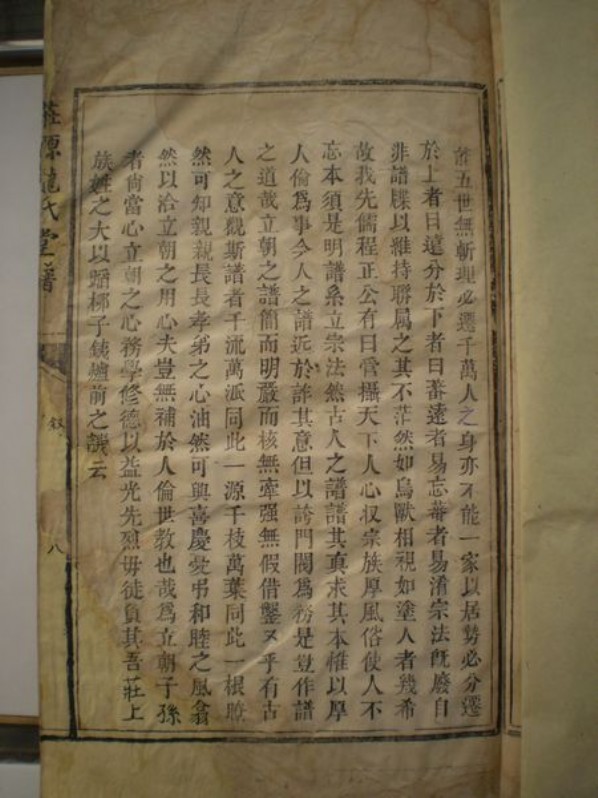 五世無斬理必遷千萬人之身亦不能一家以居勢必分遷
於上者曰遠分於下者曰蕃遠者易忘蕃者易淆宗法旣廢自
非譜牒以維持聯属之其不茫然如鳥獸相視如塗人者幾希
故我先儒程正公有曰管攝天下人心収宗族厚風俗使人不
忘本須是明譜系立宗法然古人之譜譜其真求其本惟以厚
人倫爲事今人之譜近於詐其意但以誇門閥爲務是豈作譜
之道哉立朝之譜簡而明嚴而核無牽强無假借鑿又乎有古
人之意觀斯譜者千流萬派同此一源千枝萬葉同此一根瞭
然可知親親長長孝弟之心油然可興喜慶憂弔和睦之風翕
然以洽立朝之用心夫豈無補於人倫世教也哉爲立朝子孫
者尚當心立朝之心務學修德以益光先烈毋徒負其吾莊上
族姓之大以蹈梆子錢爐前之誚云
莊源龍氏堂譜
叙
八